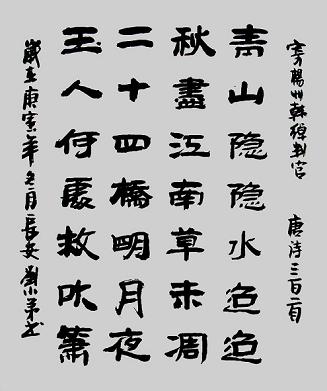 寄揚州韓綽判官 唐詩三百首
青山隐隐水迢迢
秋盡江南草未凋
二十四橋明月夜
玉人何處教吹簫
歲在庚寅年冬月長安劉小平書